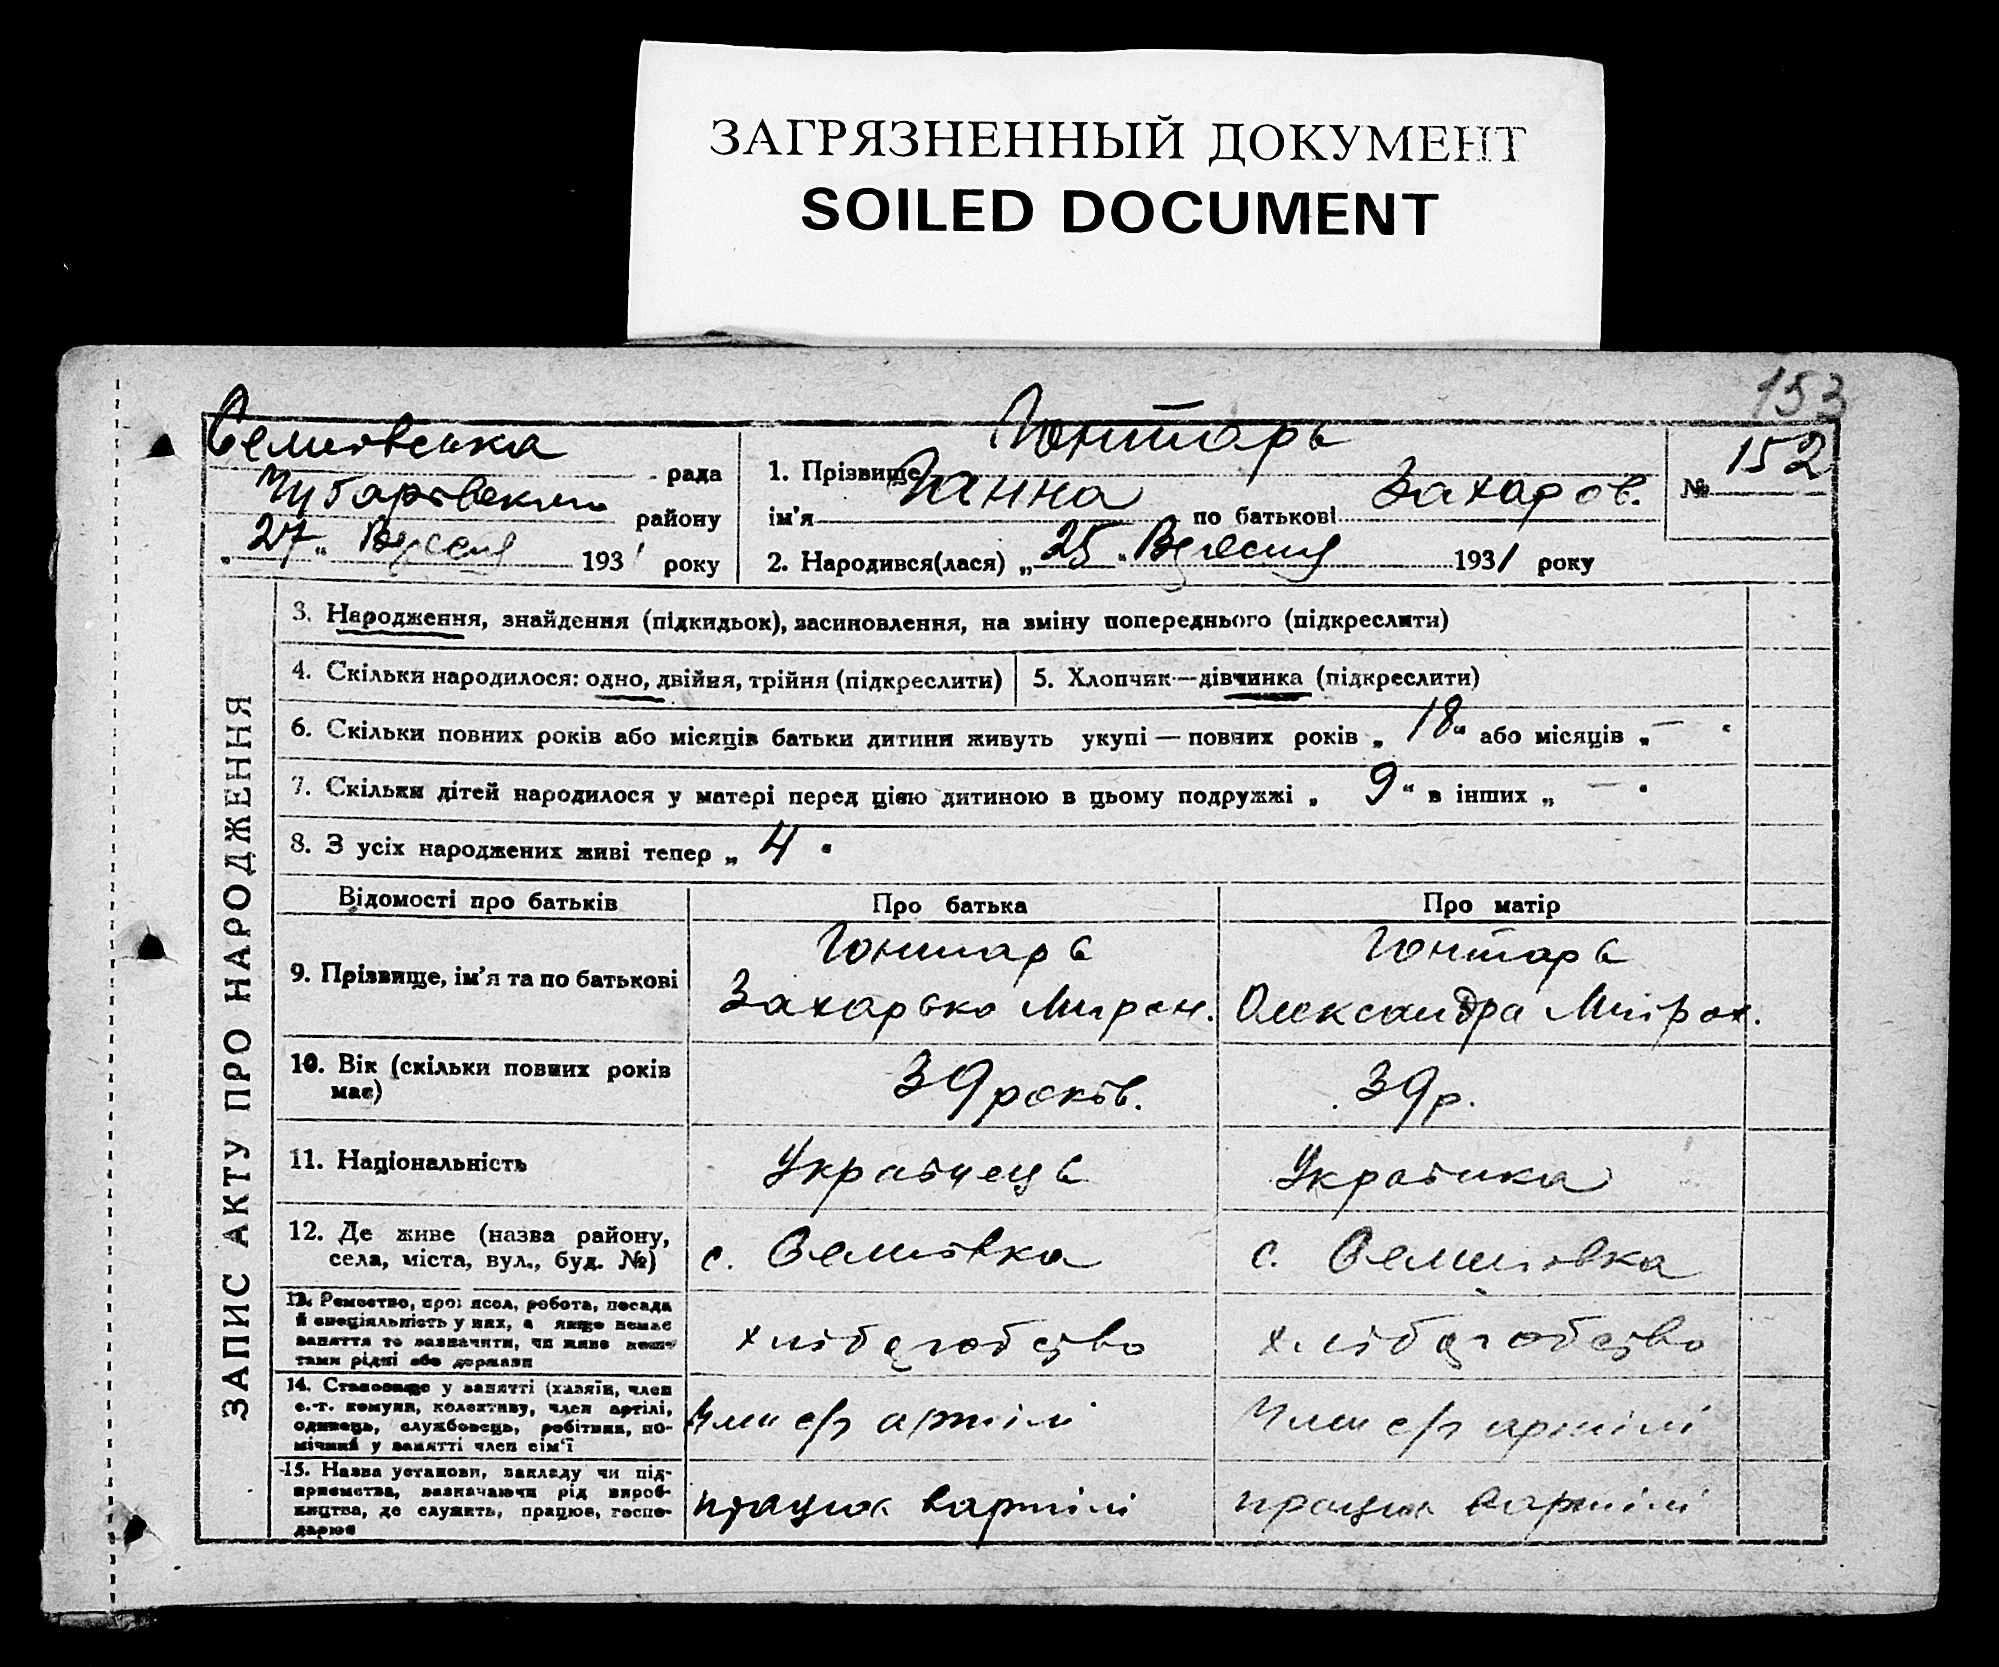 ЗАГРЯЗНЕННЫЙ ДОКУМЕНТ
SOILED DOCUMENT
153
ЗАПИС АКТУ ПРО НАРОДЖЕННЯ
Семенівська рада
Чубарівського району
„ 27 " Вересня 1931 року
Гонтарь
1. Прізвище
ім'я Ганна по батькові Захаров.
2. Народився(лася) „ 25 " Вересня 1931 року
№ 152
3. Народження, знайдення (підкидьок), засиновлення, на зміну попереднього (підкреслити)
4. Скільки народилося: одно, двійня, трійня (підкреслити)
5. Хлопчик—дівчинка (підкреслити)
6. Скільки повних років або місяців батьки дитини живуть укупі — повних років „ 18 " або місяців „ — "
7. Скільки дітей народилося у матері перед цією дитиною в цьому подружжі „ 9 " в інших „ — "
8. З усіх народжених живі тепер „ 4 "
Відомості про батьків Про батька Про матір
9. Прізвище, ім'я та по батькові
Гонтарь
Захарько Мирон.
Гонтарь
Олександра Мирон.
10. Вік (скільки повних років
має)
39 років.
39 р.
11. Національність Українець Українка
12. Де живе (назва району,
села, міста, вул., буд. №)
с. Семенівка
с. Семенівка
13. Ремество, професія, робота, посада
й спеціяльність у них, а якщо немає
заняття то зазначити, чи живе кош-
тами рідні або держави
хліборобство
хліборобство
14. Становище у занятті (хазяїн, член
с.-г. комуни, колективу, член артілі,
одинець, службовець, робітник, по-
мічний у занятті член сім'ї
Член с/г артілі
Член с/г артілі
15. Назва установи, закладу чи під-
приємства, зазначаючи рід вироб-
ництва, де служить, працює, госпо-
дарює
працює вартілі
працює вартілі